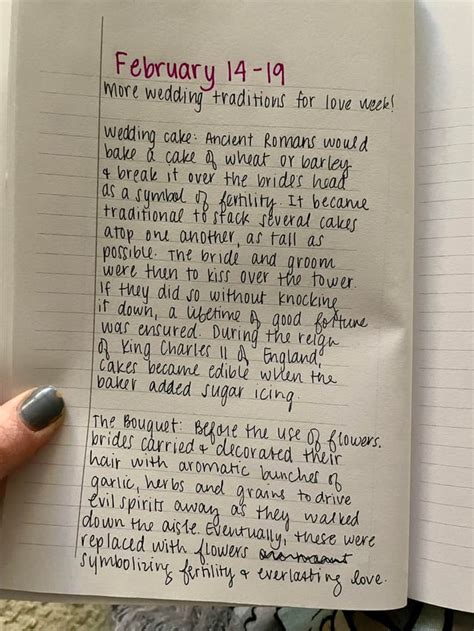 February 14-19
More wedding traditions for love week!
Wedding cake: Ancient Romans would
bake a cake of wheat or barley
& break it over the brides head
as a symbol of fertility. It became
traditional to stack several cakes
atop one another, as tall as
possible. The bride and groom
were then to kiss over the tower.
If they did so without knocking
it down, a lifetime of good fortune
was ensured. During the reign
of King Charles II of England,
cakes became edible when the
baker added sugar icing.
The Bouquet: Before the use of flowers,
brides carried & decorated their
hair with aromatic bunches of
garlic, herbs and grains to drive
evil spirits away as they walked
down the aisle. Eventually, these were
replaced with flowers
symbolizing fertility & everlasting love.